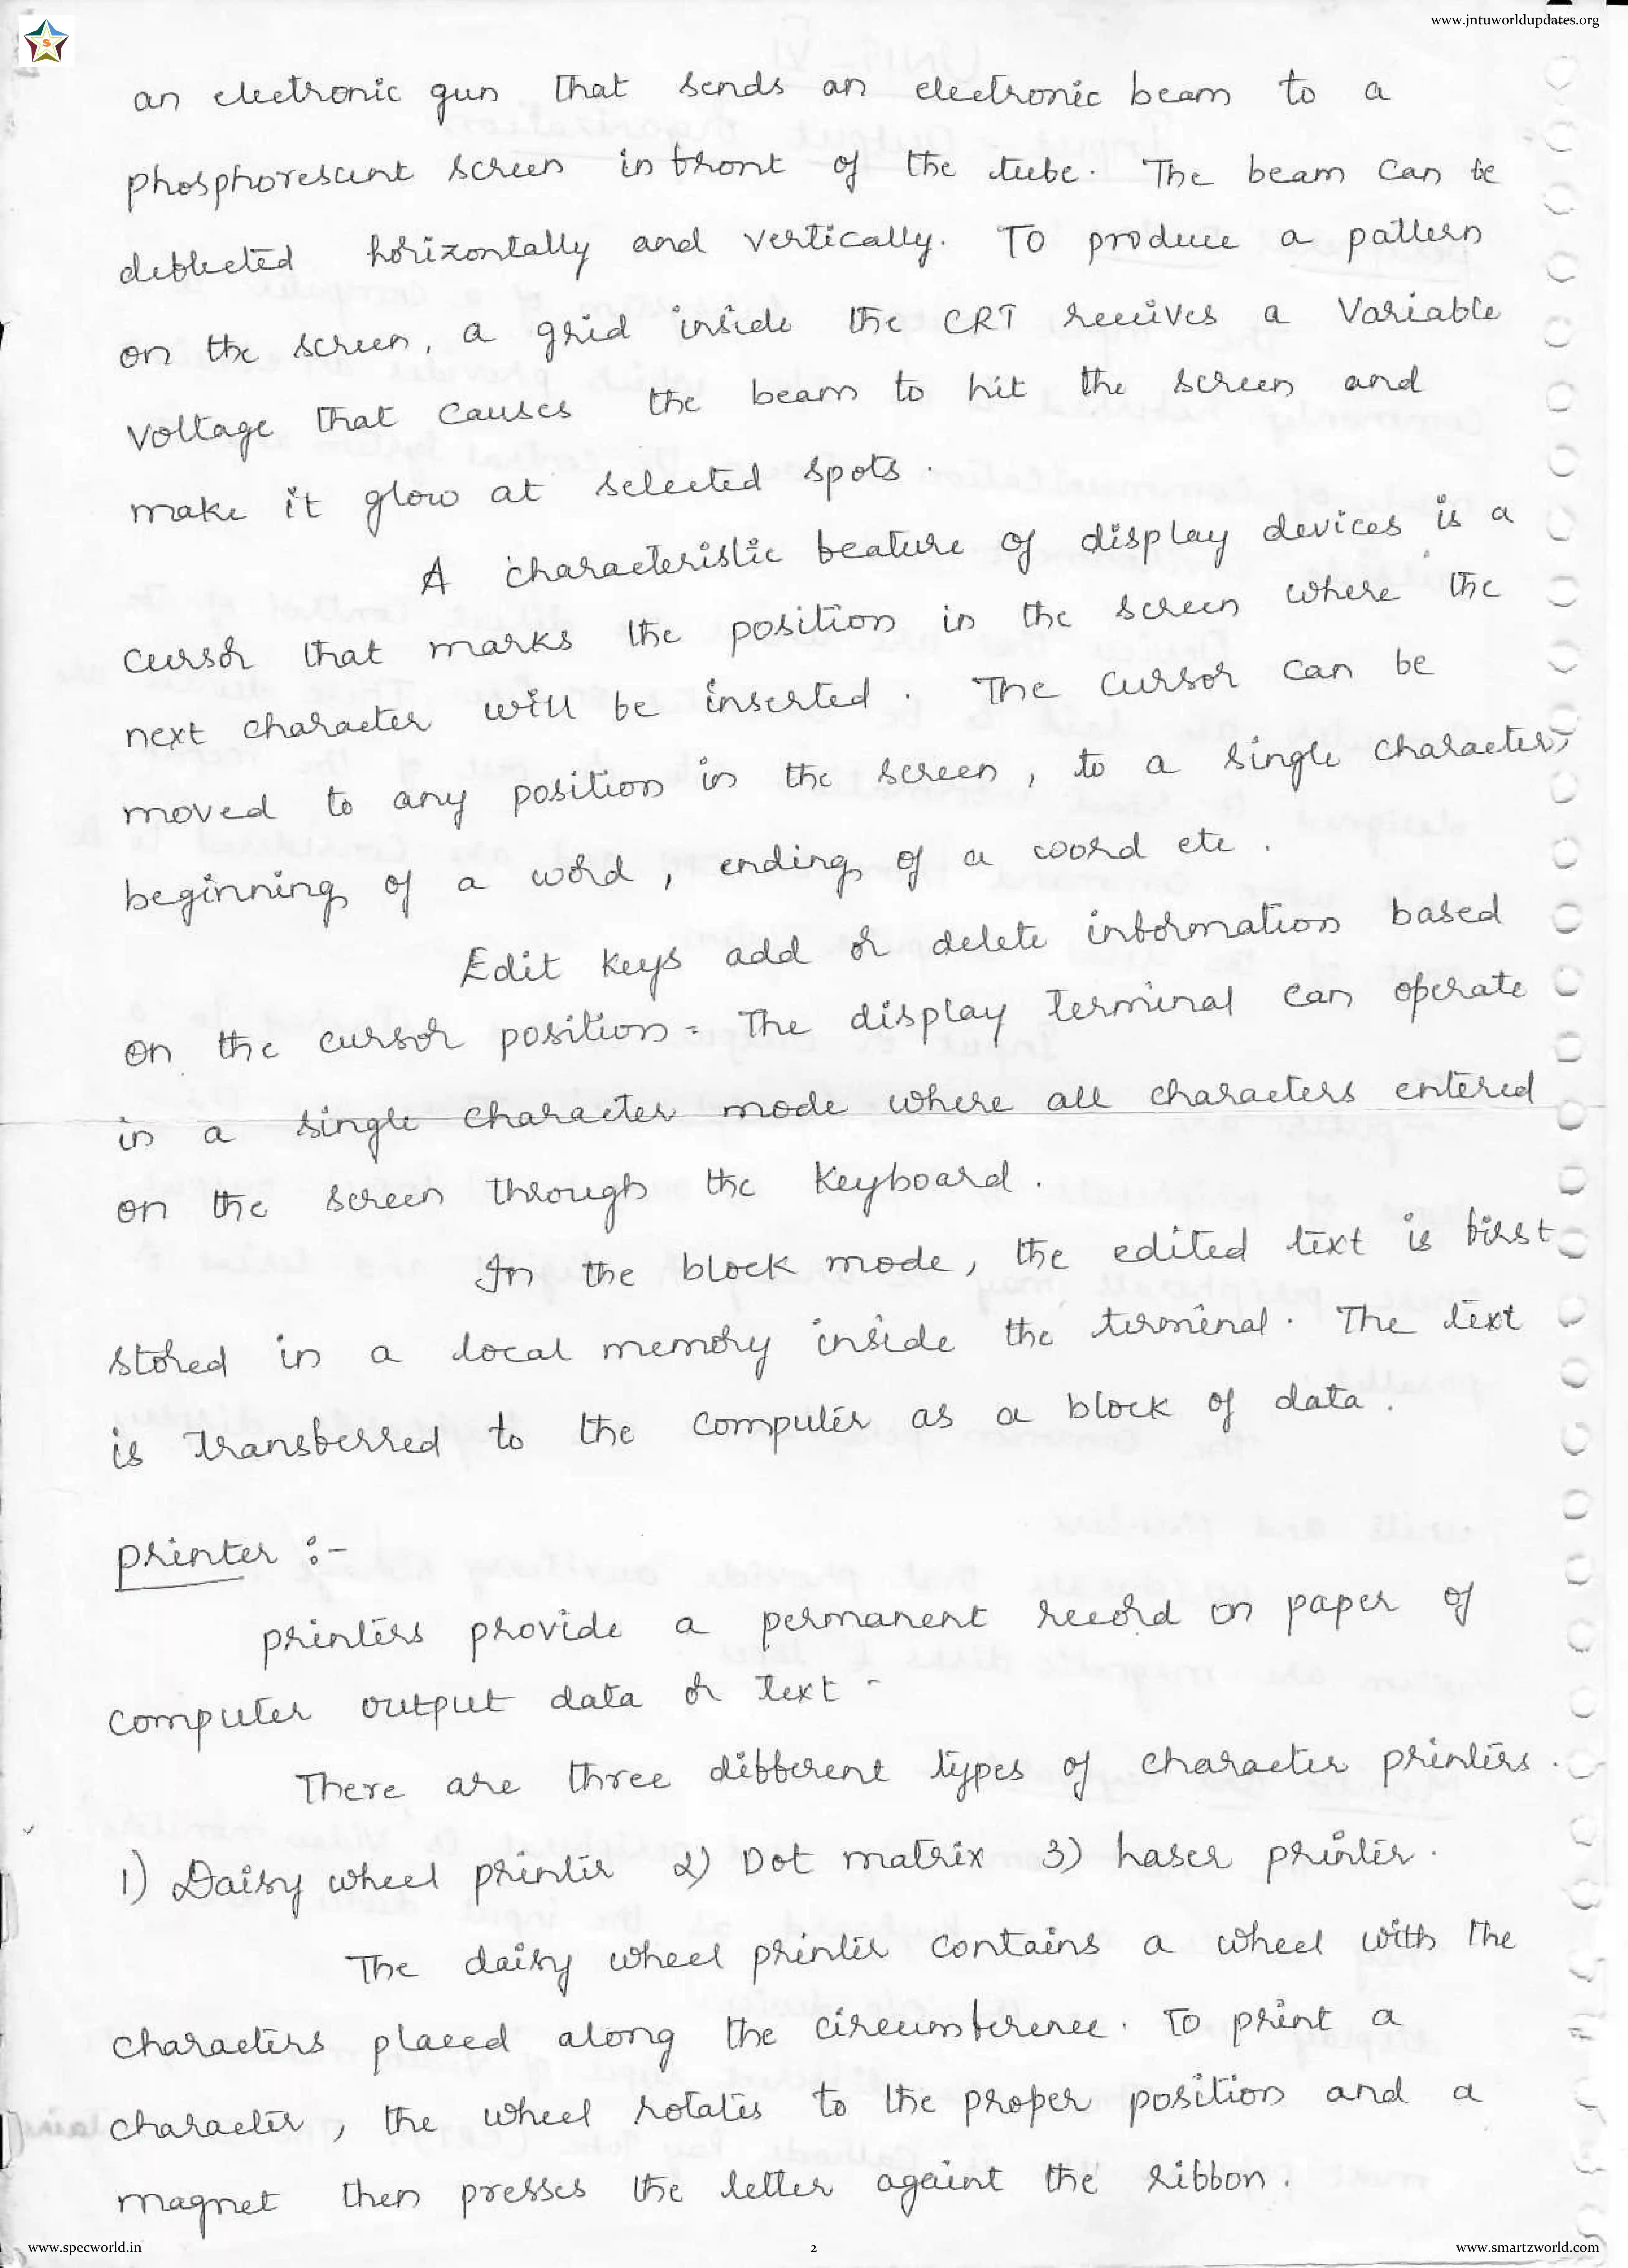 www.jntuworldupdates.org
S
an electronic gun that sends an electronic beam to a
phosphorescent screen in front of the tube. The beam can be
deflected horizontally and vertically. To produce a pattern
on the screen, a grid inside the CRT receives a variable
voltage that causes the beam to hit the screen and
make it glow at selected spots.
A characteristic feature of display devices is a
cursor that marks the position in the screen where the
next character will be inserted. The cursor can be
moved to any position in the screen, to a single character,
beginning of a word, ending of a word etc.
Edit keys add or delete information based
on the cursor position. The display terminal can operate
in a single character mode where all characters entered
on the screen through the keyboard.
In the block mode, the edited text is first
stored in a local memory inside the terminal. The text
is transferred to the computer as a block of data.
printer :-
printers provide a permanent record on paper of
computer output data or text.
There are three different types of character printers.
1) Daisy wheel printer 2) Dot matrix 3) Laser printer.
The daisy wheel printer contains a wheel with the
characters placed along the circumference. To print a
character, the wheel rotates to the proper position and a
magnet then presses the letter againt the ribbon.
www.specworld.in
2
www.smartzworld.com